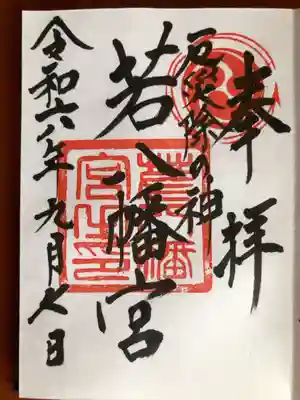 奉拝
厄災除の神
若八幡宮
令和六年九月七日
若八幡
宮之印